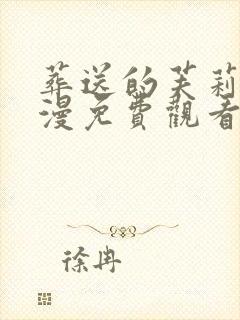 葬送的芙莉
漫免費觀看
徐冉